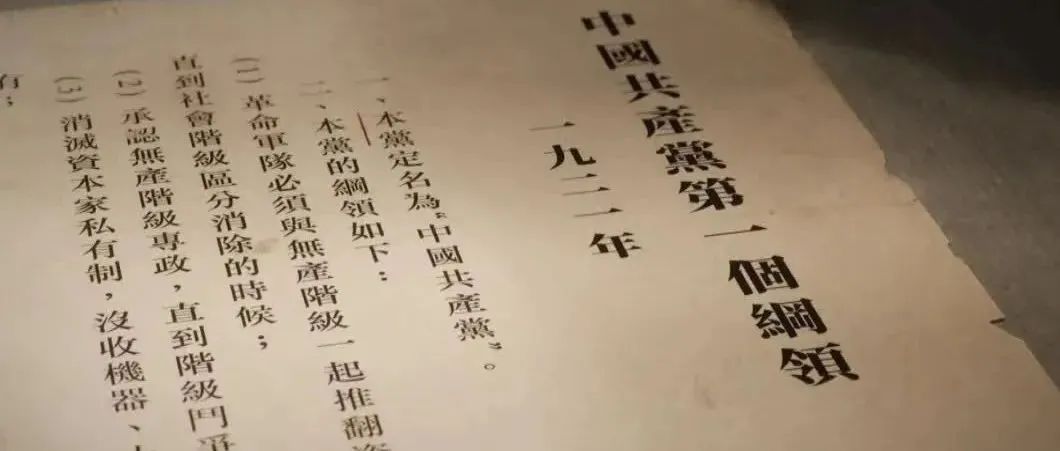 中國共產黨第一個綱領
一九二一年
一、本黨定名為“中國共產黨”。
二、本黨的綱領如下：
(1) 革命軍隊必須與無產階級一起推翻資
直到社會階級區分消除的時候；
(2) 承認無產階級專政，直到階級鬥爭
(3) 消滅資本家私有制，沒收機器、
有；